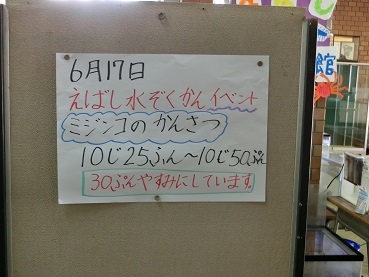 6月17日
えばし水ぞくかんイベント
ミジンコのかんさつ
10じ25ふん～10じ50ぷん
30ぷんやすみにしています。
館